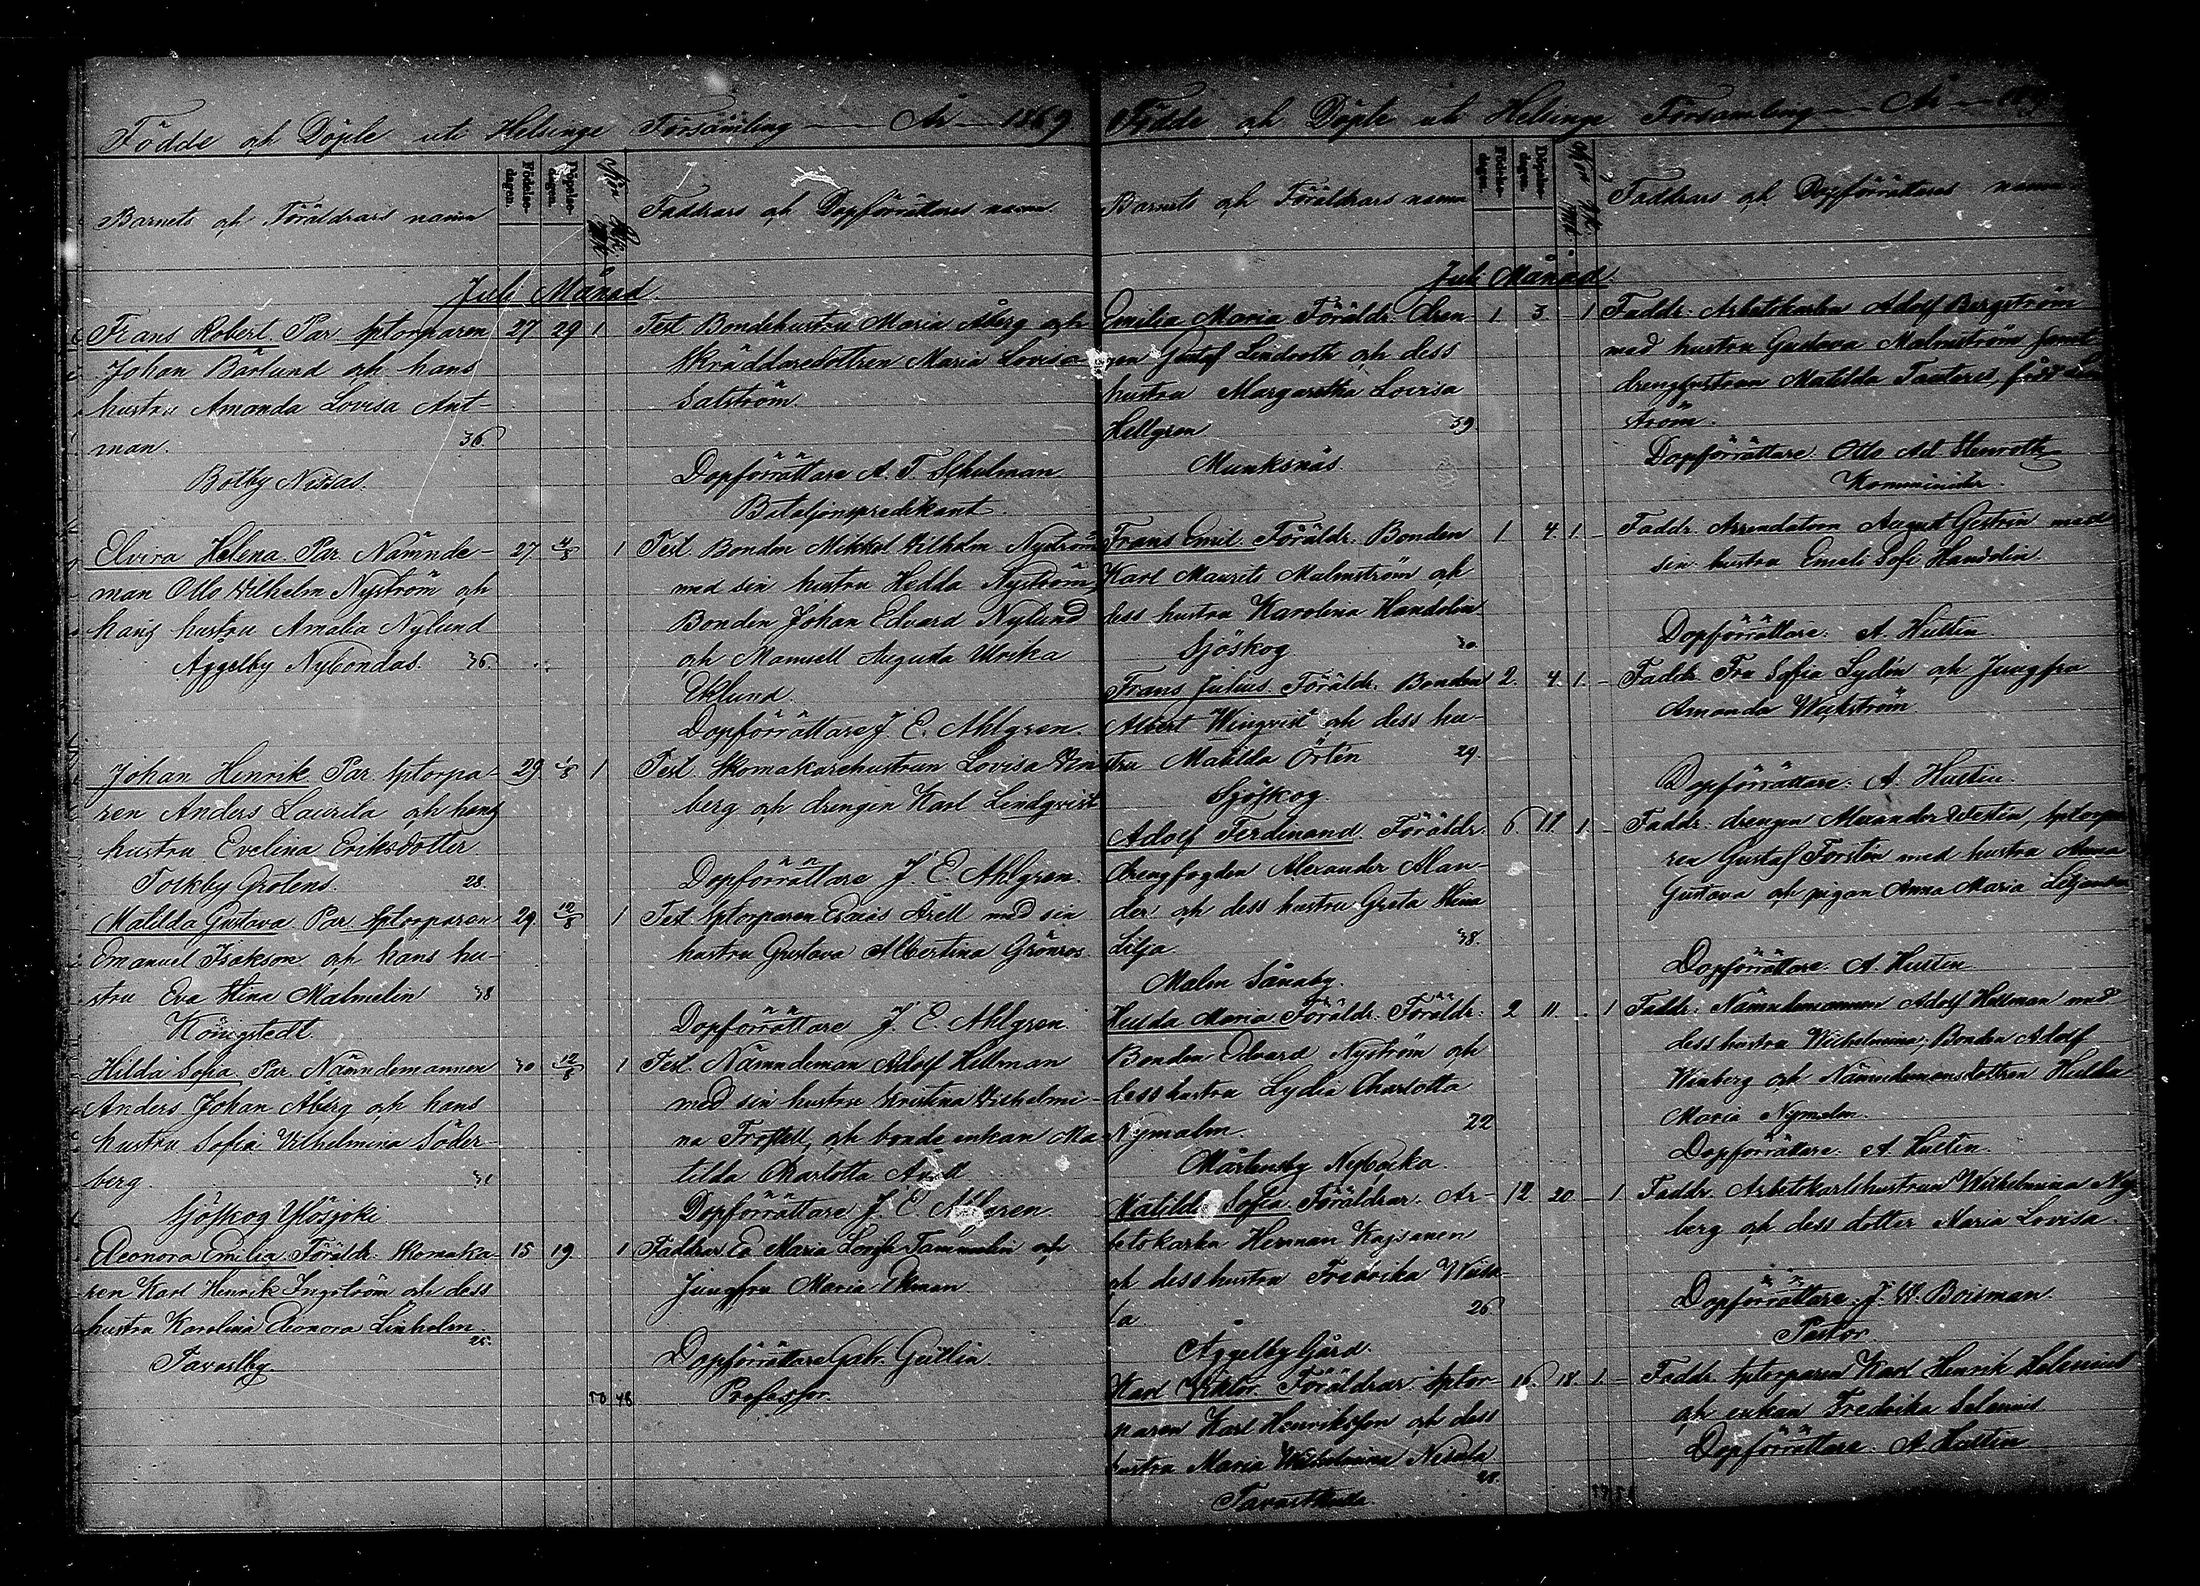 Födde och Döpte uti Helsinge Församling — År — 1869
Barnets och Föräldrars namn
Födelse-
dagen.
Döpelse-
dagen.
Kön
Mk.
Qk.
Faddrars och Dopförrättares namn.
Juli Månad.
Frans Robert Par. sptorparen 27 29 1
Johan Bärlund och hans
hustru Amanda Lovisa Ant-
man. 36
Botby Nissas.
Test Bondehustru Maria Åberg och
Skräddaredottren Maria Lovisa
Salström.
Dopförrättare A. T. Schulman
Bataljonspredikant.
Elvira Helena. Par. Nämnde- 27 4/8 1
man Otto Wilhelm Nyström och
hans hustru Amalia Nylund
Åggelby Nybondas. 36.
Test. Bonden Mikkel Wilhelm Nyström
med sin hustru Hedda Nyström,
Bonden Johan Edvard Nylund
och Mamsell Augusta Ulrika
Eklund.
Dopförrättare J. E. Ahlgren.
Johan Henrik Par. sptorpa- 29 1/8 1
ren Anders Laurila och hans
hustru Evelina Eriksdotter
Tolkby Grotens. 28.
Test. Skomakarehustrun Lovisa
berg och drengen Karl Lindqvist
Dopförrättare J. E. Ahlgren.
Matilda Gustava Par. sptorparen 29. 10/8 1
Emanuel Isakson och hans hu-
stru Eva Stina Malmelin 38
Königstedt.
Test. sptorparen Esaias Arell med sin
hustru Gustava Albertina Grönros
Dopförrättare J. E. Ahlgren.
Hilda Sofia. Par. Nämndemannen 30 12/8 1
Anders Johan Åberg och hans
hustru Sofia Wilhelmina Söder-
berg. 31
Sjöskog Ylösjoki
Test. Nämndeman Adolf Hellman
med sin hustru Kristina Wilhelmi-
na Frostell, och bonde enkan Ma-
tilda Charlotta
Dopförrättare J. E. Ahlgren.
Eleonora Emilia Föräldr. Skomaka- 15 19 1
ren Karl Henrik Ingström och dess
hustru Karolina Eleonora Linholm.
25.
Tavastby
Faddrar Maria Lovisa Tammelin och
Jungfru Maria Ekman
Dopförrättare Gabr. Geitlin
Professor.
50 48
Födde och Döpte uti Helsinge Församling — År —
Barnets och Föräldrars namn
Födelse-
dagen.
Döpelse-
dagen.
Kön
Mk.
Qk.
Faddrars och Dopförrättares namn
Juli Månad.
Emilia Maria Föräldr. Dren- 1 3 1
gen Gustaf Lindroth och dess
hustru Margaretha Lovisa
Hellgren 39
Munksnäs.
Faddr. Arbetskarlen Adolf Bergström
med hustru Gustava Malmström samt
drenghustrun Matilda född
ström.
Dopförrättare Otto Ad. Stenroth
Komminister.
Frans Emil. Föräldr. Bonden 1 4. 1. –
Karl Maurits Malmström och
dess hustru Karolina Handolin
Sjöskog 30.
Faddr. Arrendatorn August Gestrin med
sin hustru Emeli Sofi Handolin.
Dopförrättare: A. Hultin.
Frans Julius. Föräldr. Bonden 2. 4. 1. –
Albert Winqvist och dess hu-
stru Matilda Örtén 29.
Sjöskog.
Faddr. Fru Sofia Lydén och Jungfru
Amanda Weckström
Dopförrättare: A. Hultin.
Adolf Ferdinand Föräldr. 6. 11 1. –
drengfogden Alexander Man-
der och dess hustru Greta Stina
Lilja 38.
Malm Sånaby.
Faddr. drengen Alexander Westén, sptorpa
ren Gustaf Forstén med hustru
Gustava och pigan Anna Maria
Dopförrättare: A. Hultin
Hulda Maria Föräldr. Föräldr. 2 11. 1
Bonden Edvard Nyström och
dess hustru Lydia Charlotta
Nymalm. 22
Mårtensby Nybacka.
Faddr: Nämndemannen Adolf Hellman med
dess hustru Wilhelmina, Bonden Adolf
Winberg och Nämndemansdottren Hulda
Maria Nymalm.
Dopförrättare: A. Hultin.
Matilda Sofia. Föräldrar: Ar- 12 20 – 1.
betskarlen Herman Kajsanen
och dess hustru Fredrika
la 26
Åggelby Gård.
Faddr. Arbetskarlshustrun Wilhelmina Ny-
berg och dess dotter Maria Lovisa.
Dopförrättare: J. W. Boisman.
Pastor.
Karl Viktor. Föräldrar: sptor- 16. 18. 1. –
paren Karl Henriksson och dess
hustru Maria Wilhelmina
28.
Faddr. sptorparen Karl Henrik Selenius
och enkan Fredrika Selenius
Dopförrättare: A. Hultin